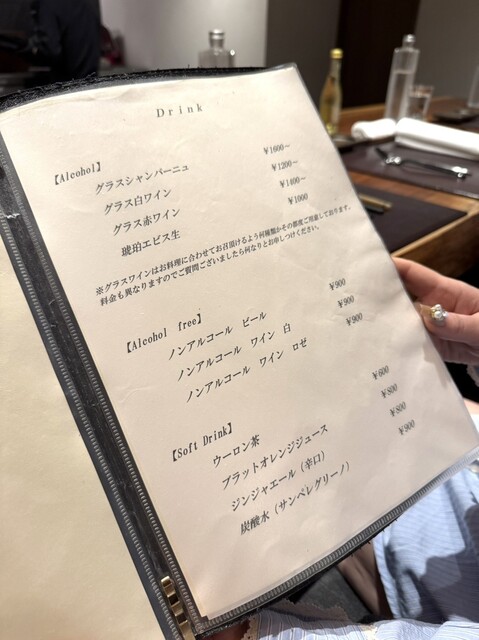 Drink
【Alcohol】
グラスシャンパーニュ ¥1600~
グラス白ワイン ¥1200~
グラス赤ワイン ¥1400~
琥珀エビス生 ¥1000
※グラスワインはお料理に合わせてお召頂けるよう何種類かその都度ご用意しております。
料金も異なりますのでご質問ございましたら何なりとお申しつけください。
【Alcohol free】
ノンアルコール ビール ¥900
ノンアルコール ワイン 白 ¥900
ノンアルコール ワイン ロゼ ¥900
【Soft Drink】
ウーロン茶 ¥600
ブラットオレンジジュース ¥800
ジンジャエール（辛口） ¥800
炭酸水（サンペレグリーノ） ¥900